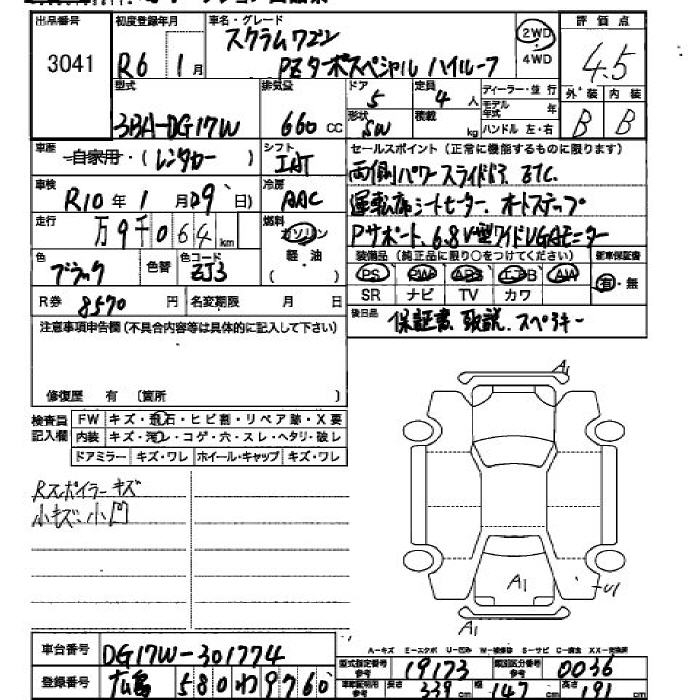 出品番号 初度登録年月 車名・グレード 評価点
3041 R6 1月 スクラムワゴン 2WD 4.5
PZターボスペシャル ハイルーフ 4WD
型式 排気量 ドア 定員 ディーラー・並行 外装 内装
3BA-DG17W 660 CC 5 4人 モデル年式 年 B B
形状 SW 積載 kg ハンドル 左・右
車歴 自家用・(レンタカー) シフト IAT セールスポイント(正常に機能するものに限ります)
両側パワースライドドア, ETC.
車検 R10年1月09日) 冷房 AAC 運転席シートヒーター、オートステップ
走行 万9千064km 燃料 ガソリン Pサポート、6.8V型ワイドVGAモニター
軽油
( )
色 ブラック 色替 色コード ZJ3 装備品(純正品に限り○をつけてください) 新車保証書
PS PW ABS エアB AW 有・無
SR ナビ TV カワ
R券 8570円 名変期限 月 日 後日品 保証書、取説、スペアキー
注意事項申告欄(不具合内容等は具体的に記入して下さい)
修復歴 有 〔箇所 〕
検査員記入欄 FW キズ・飛石・ヒビ割・リペア跡・X要
内装 キズ・汚レ・コゲ・穴・スレ・ヘタリ・破レ
ドアミラー キズ・ワレ ホイール・キャップ キズ・ワレ
Rスポイラーキズ
小キズ、小凹
A1
A1
U1
A1
A-キズ E-エクボ U-凹み W-補修跡 S-サビ C-腐食 XX-交換済
車台番号 DG17W-301774 型式指定番号参考 19173 類別区分番号参考 0036
登録番号 広島 580 わ 9760 車庫証明用参考 長さ 339cm 幅 147cm 高さ 191cm